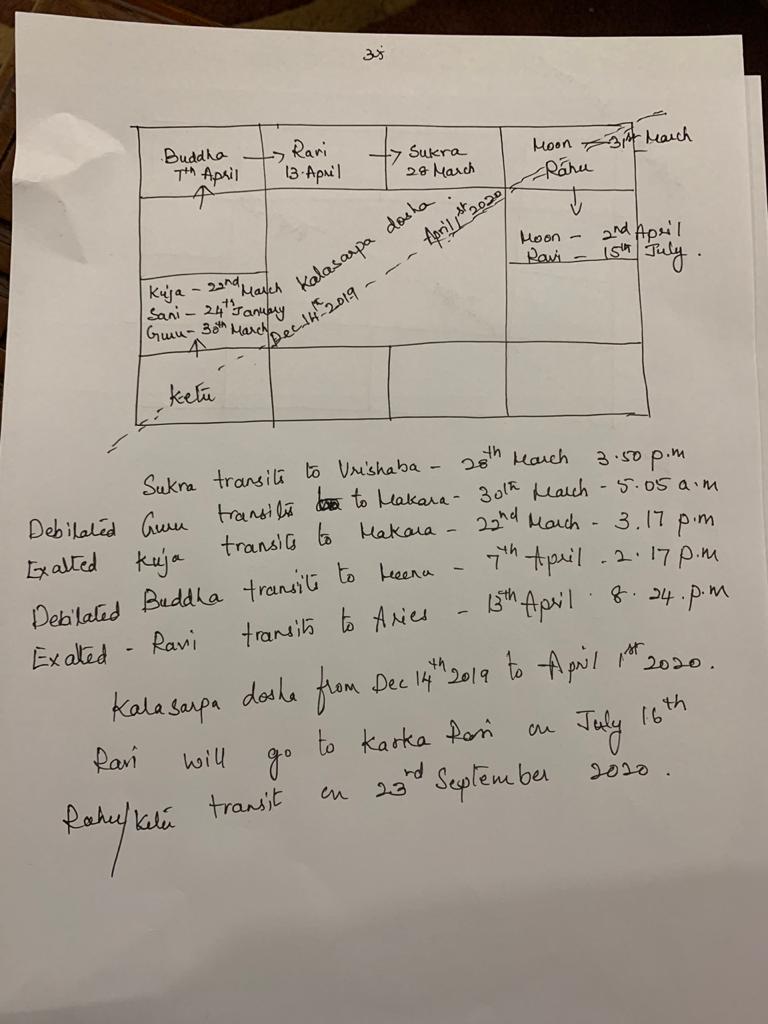 Buddha → Ravi → Sukra
7th April 13 April 28 March
Moon → 31st March
Rahu
Moon - 2nd April
Ravi - 15th July.
Kalasarpa dosha.
Dec 14th 2019 - - - April 1st 2020
Kuja - 22nd March
Sani - 24th January
Guru - 30th March
Ketu
Sukra transits to Vrishaba - 28th March 3.50 p.m
Debilated Guru transits to Makara - 30th March - 5.05 a.m
Exalted Kuja transits to Makara - 22nd March - 3.17 p.m
Debilated Buddha transits to Meena - 7th April - 2.17 p.m
Exalted - Ravi transits to Aries - 13th April 8.24.p.m
Kalasarpa dosha from Dec 14th 2019 to April 1st 2020.
Ravi will go to Karka Rasi on July 16th
Rahu/Ketu transit on 23rd September 2020.